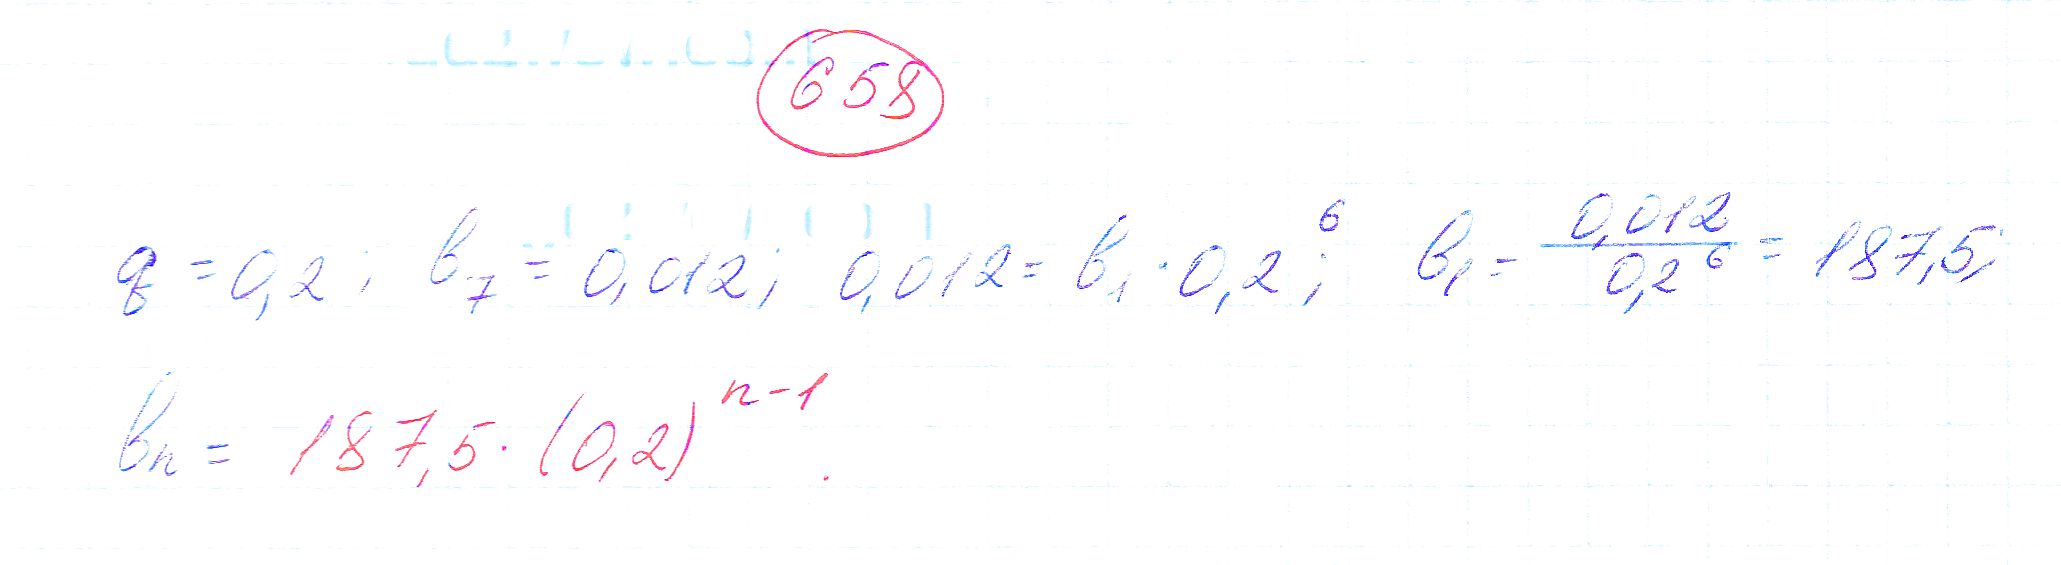 658
q = 0,2; b₇ = 0,012; 0,012 = b₁ · 0,2⁶; b₁ = 0,012/0,2⁶ = 187,5;
bₙ = 187,5 · (0,2)ⁿ⁻¹.